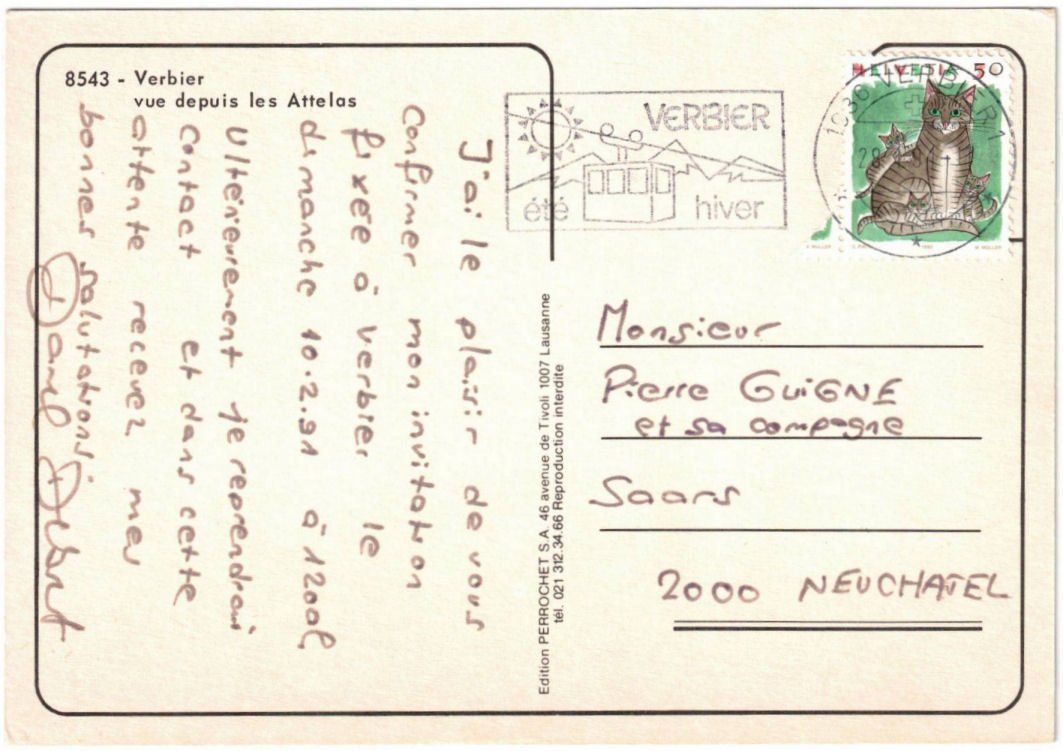 8543 - Verbier
vue depuis les Attelas
J'ai le plaisir de vous
confirmer mon invitation
fixée à Verbier le
dimanche 10.2.91 à 1200h
Ultérieurement je reprendrai
contact et dans cette
attente recevez mes
bonnes salutations
Daniel
VERBIER
été hiver
HELVETIA 50
1936 VERBIER 1
Edition PERROCHET S.A. 46 avenue de Tivoli 1007 Lausanne
tél. 021 312.34.66 Reproduction interdite
Monsieur
Pierre GUIGNE
et sa compagne
Saars
2000 NEUCHATEL